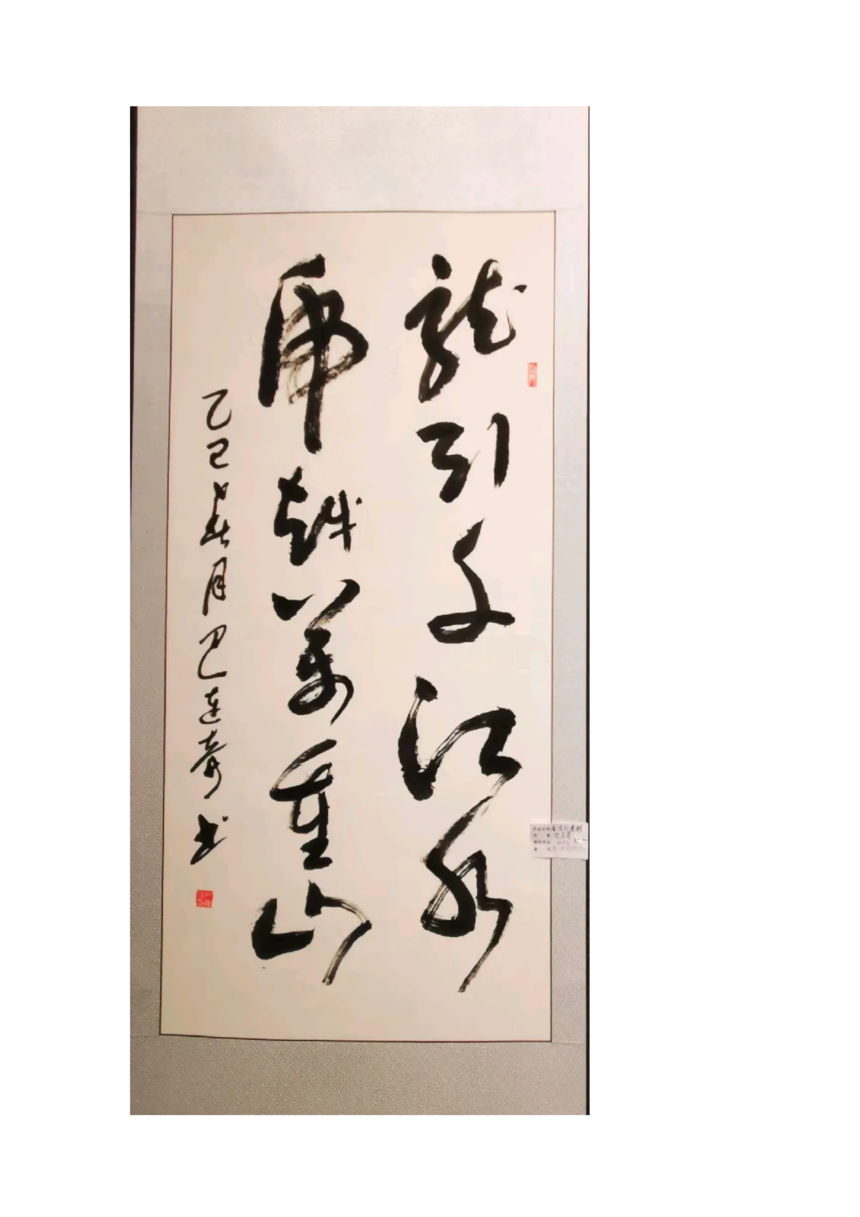 龍引千江水
虎越萬重山
乙巳春月巴連奇书